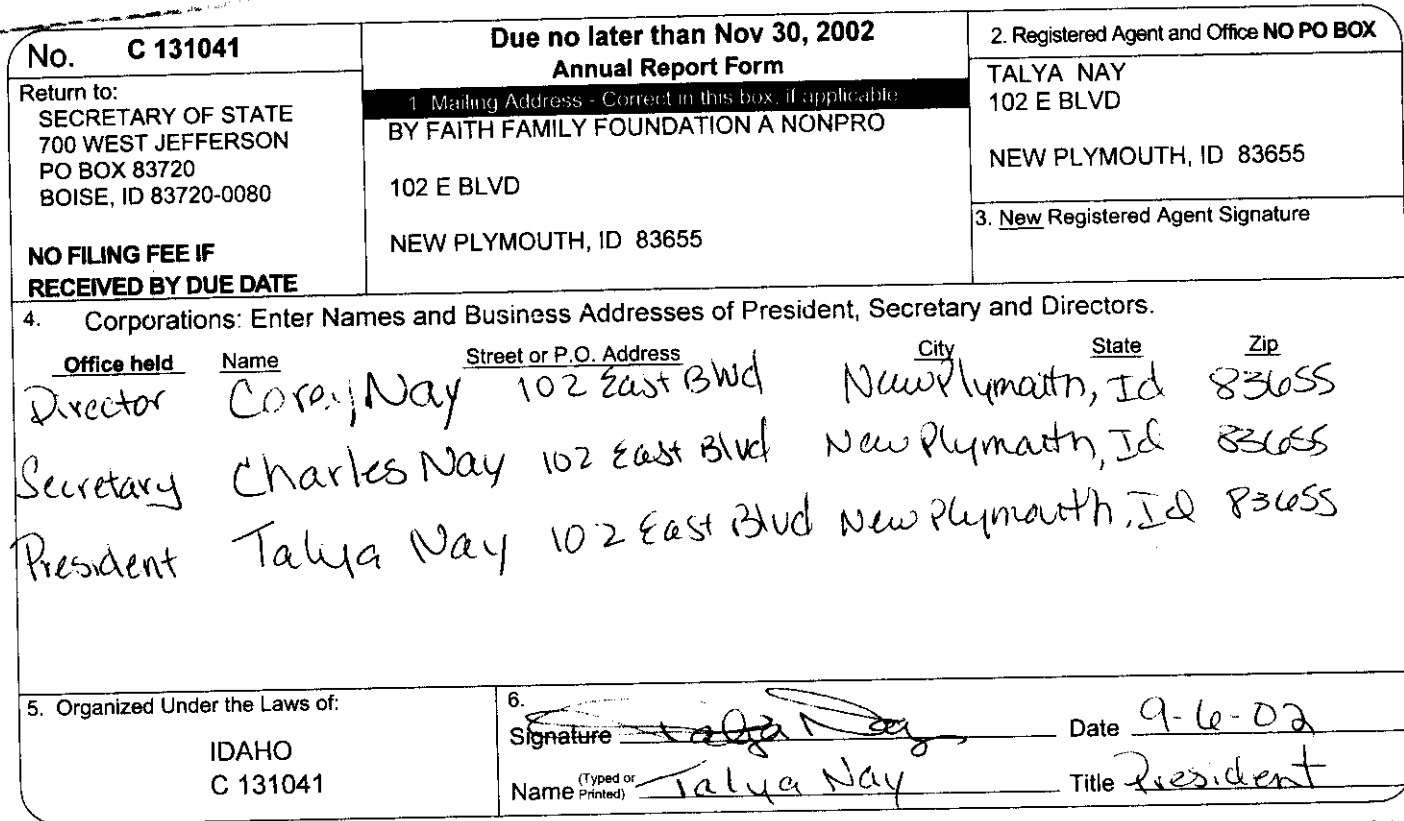 No. C 131041
Return to:
SECRETARY OF STATE
700 WEST JEFFERSON
PO BOX 83720
BOISE, ID 83720-0080
NO FILING FEE IF
RECEIVED BY DUE DATE
Due no later than Nov 30, 2002
Annual Report Form
1 Mailing Address - Correct in this box, if applicable
BY FAITH FAMILY FOUNDATION A NONPRO
102 E BLVD
NEW PLYMOUTH, ID 83655
2. Registered Agent and Office NO PO BOX
TALYA NAY
102 E BLVD
NEW PLYMOUTH, ID 83655
3. New Registered Agent Signature
4. Corporations: Enter Names and Business Addresses of President, Secretary and Directors.
Office held Name Street or P.O. Address City State Zip
Director Corey Nay 102 East Blvd New Plymouth, Id 83655
Secretary Charles Nay 102 East Blvd New Plymouth, Id 83655
President Talya Nay 102 East Blvd New Plymouth, Id 83655
5. Organized Under the Laws of:
IDAHO
C 131041
6.
Signature Talya Nay Date 9-6-02
Name (Typed or Printed) Talya Nay Title President